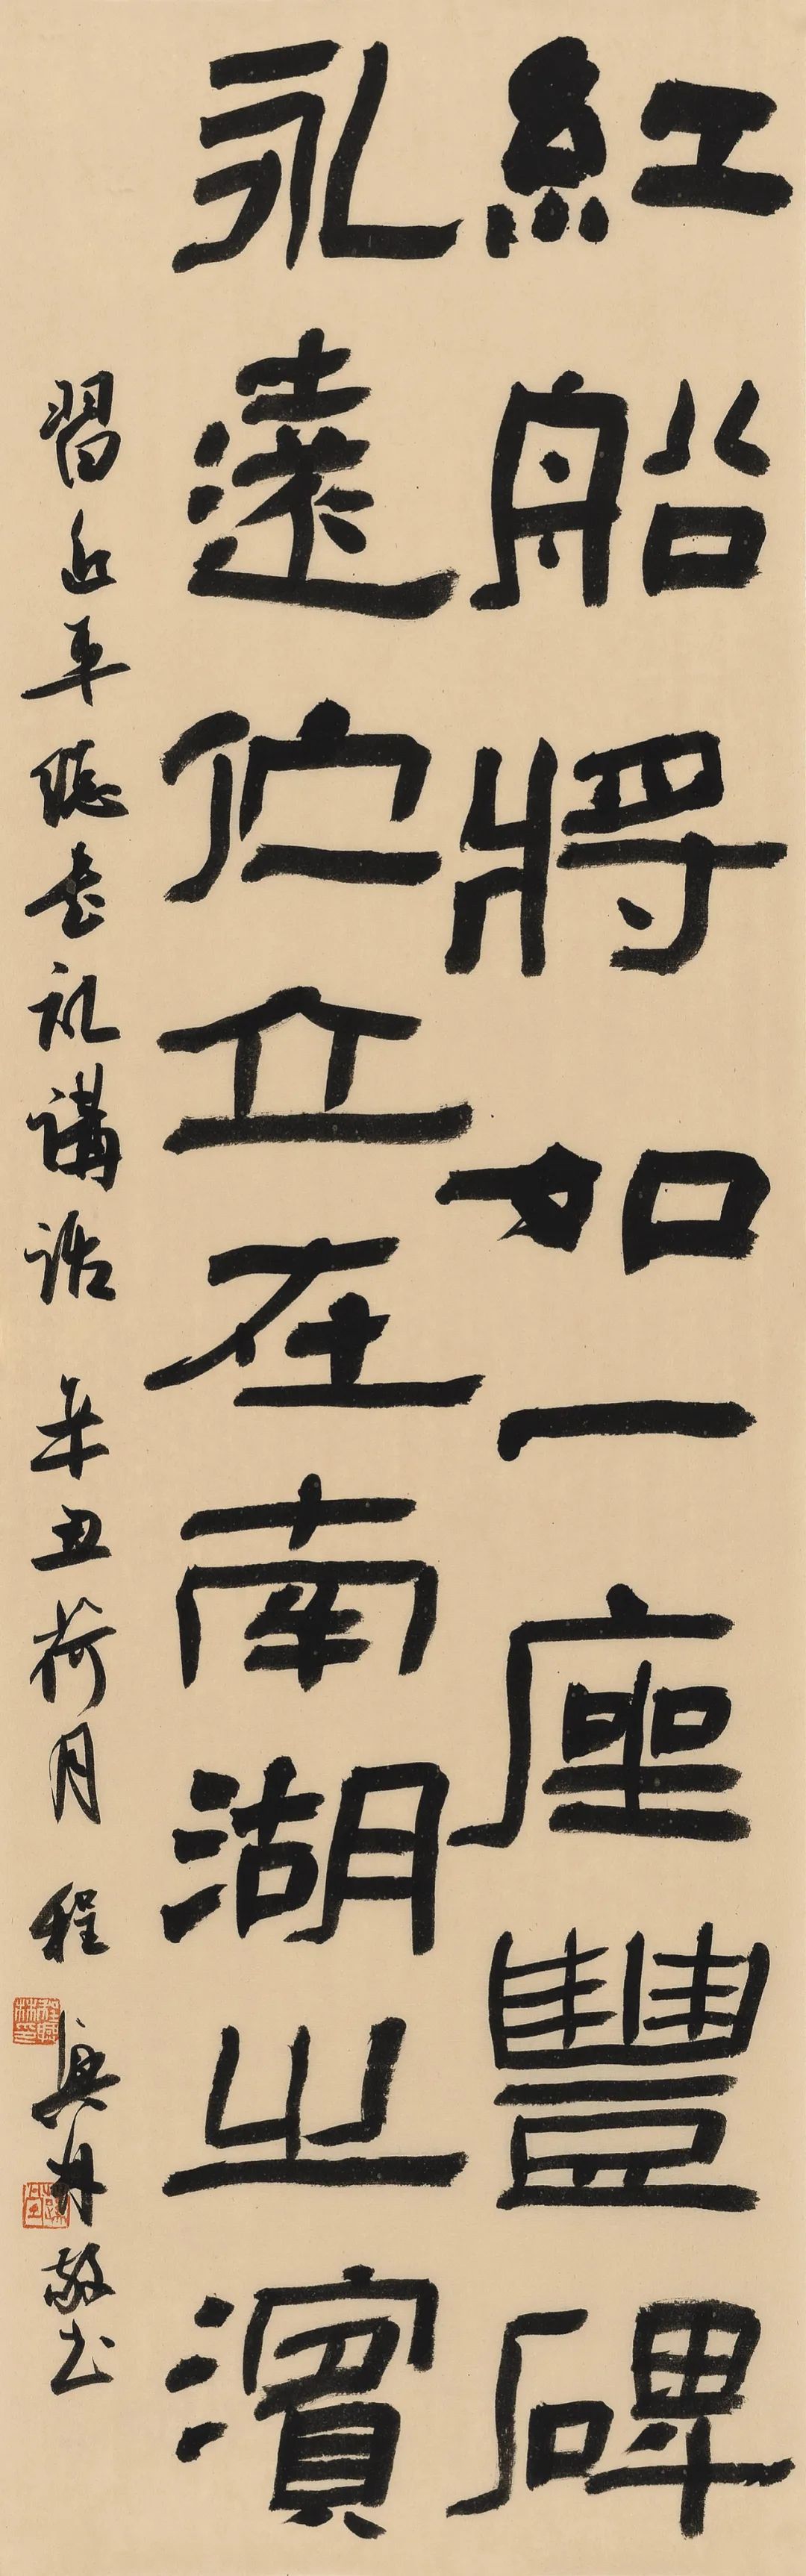 紅船將如一座豐碑
永遠伫立在南湖之濱
習近平總書記講話 辛丑荷月 程興林敬书
程興林印